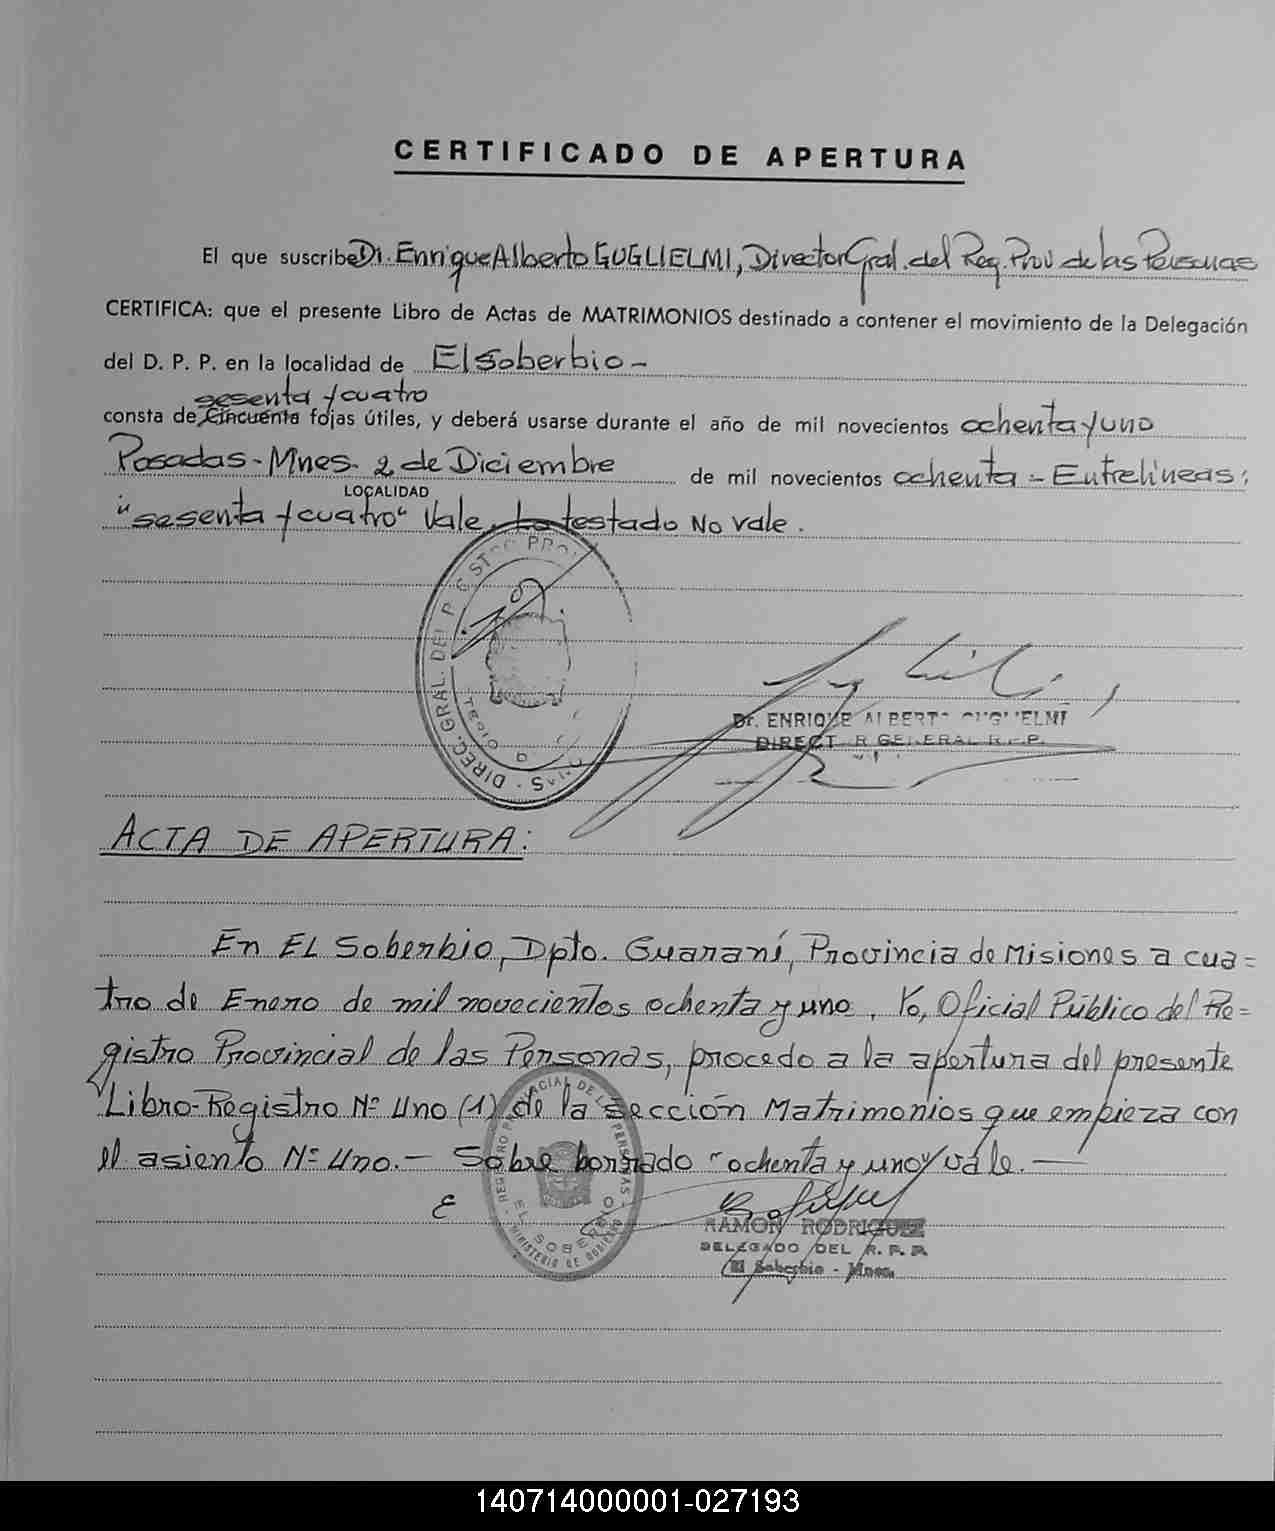 CERTIFICADO DE APERTURA
El que suscribe Dr. Enrique Alberto GUGLIELMI, Director Gral. del Reg. Prov. de las Personas
CERTIFICA: que el presente Libro de Actas de MATRIMONIOS destinado a contener el movimiento de la Delegación
del D. P. P. en la localidad de El Soberbio -
sesenta y cuatro
consta de Cincuenta fojas útiles, y deberá usarse durante el año de mil novecientos ochenta y uno
Posadas - Mnes. 2 de Diciembre de mil novecientos ochenta - Entrelíneas:
LOCALIDAD
"sesenta y cuatro" Vale. Lo testado No vale.
Dr. ENRIQUE ALBERTO GUGLIELMI
DIRECTOR GENERAL R.P.P.
ACTA DE APERTURA:
En EL Soberbio, Dpto. Guaraní, Provincia de Misiones a cua=
tro de Enero de mil novecientos ochenta y uno, Yo, Oficial Público del Re=
gistro Provincial de las Personas, procedo a la apertura del presente
Libro-Registro Nº Uno (1) de la sección Matrimonios que empieza con
el asiento Nº Uno.- Sobre borrado "ochenta y uno" vale.-
REGISTRO PROVINCIAL DE LAS PERSONAS
EL SOBERBIO
MINISTERIO DE GOBIERNO
RAMON RODRIGUEZ
DELEGADO DEL R. P. P.
El Soberbio - Mnes.
140714000001-027193